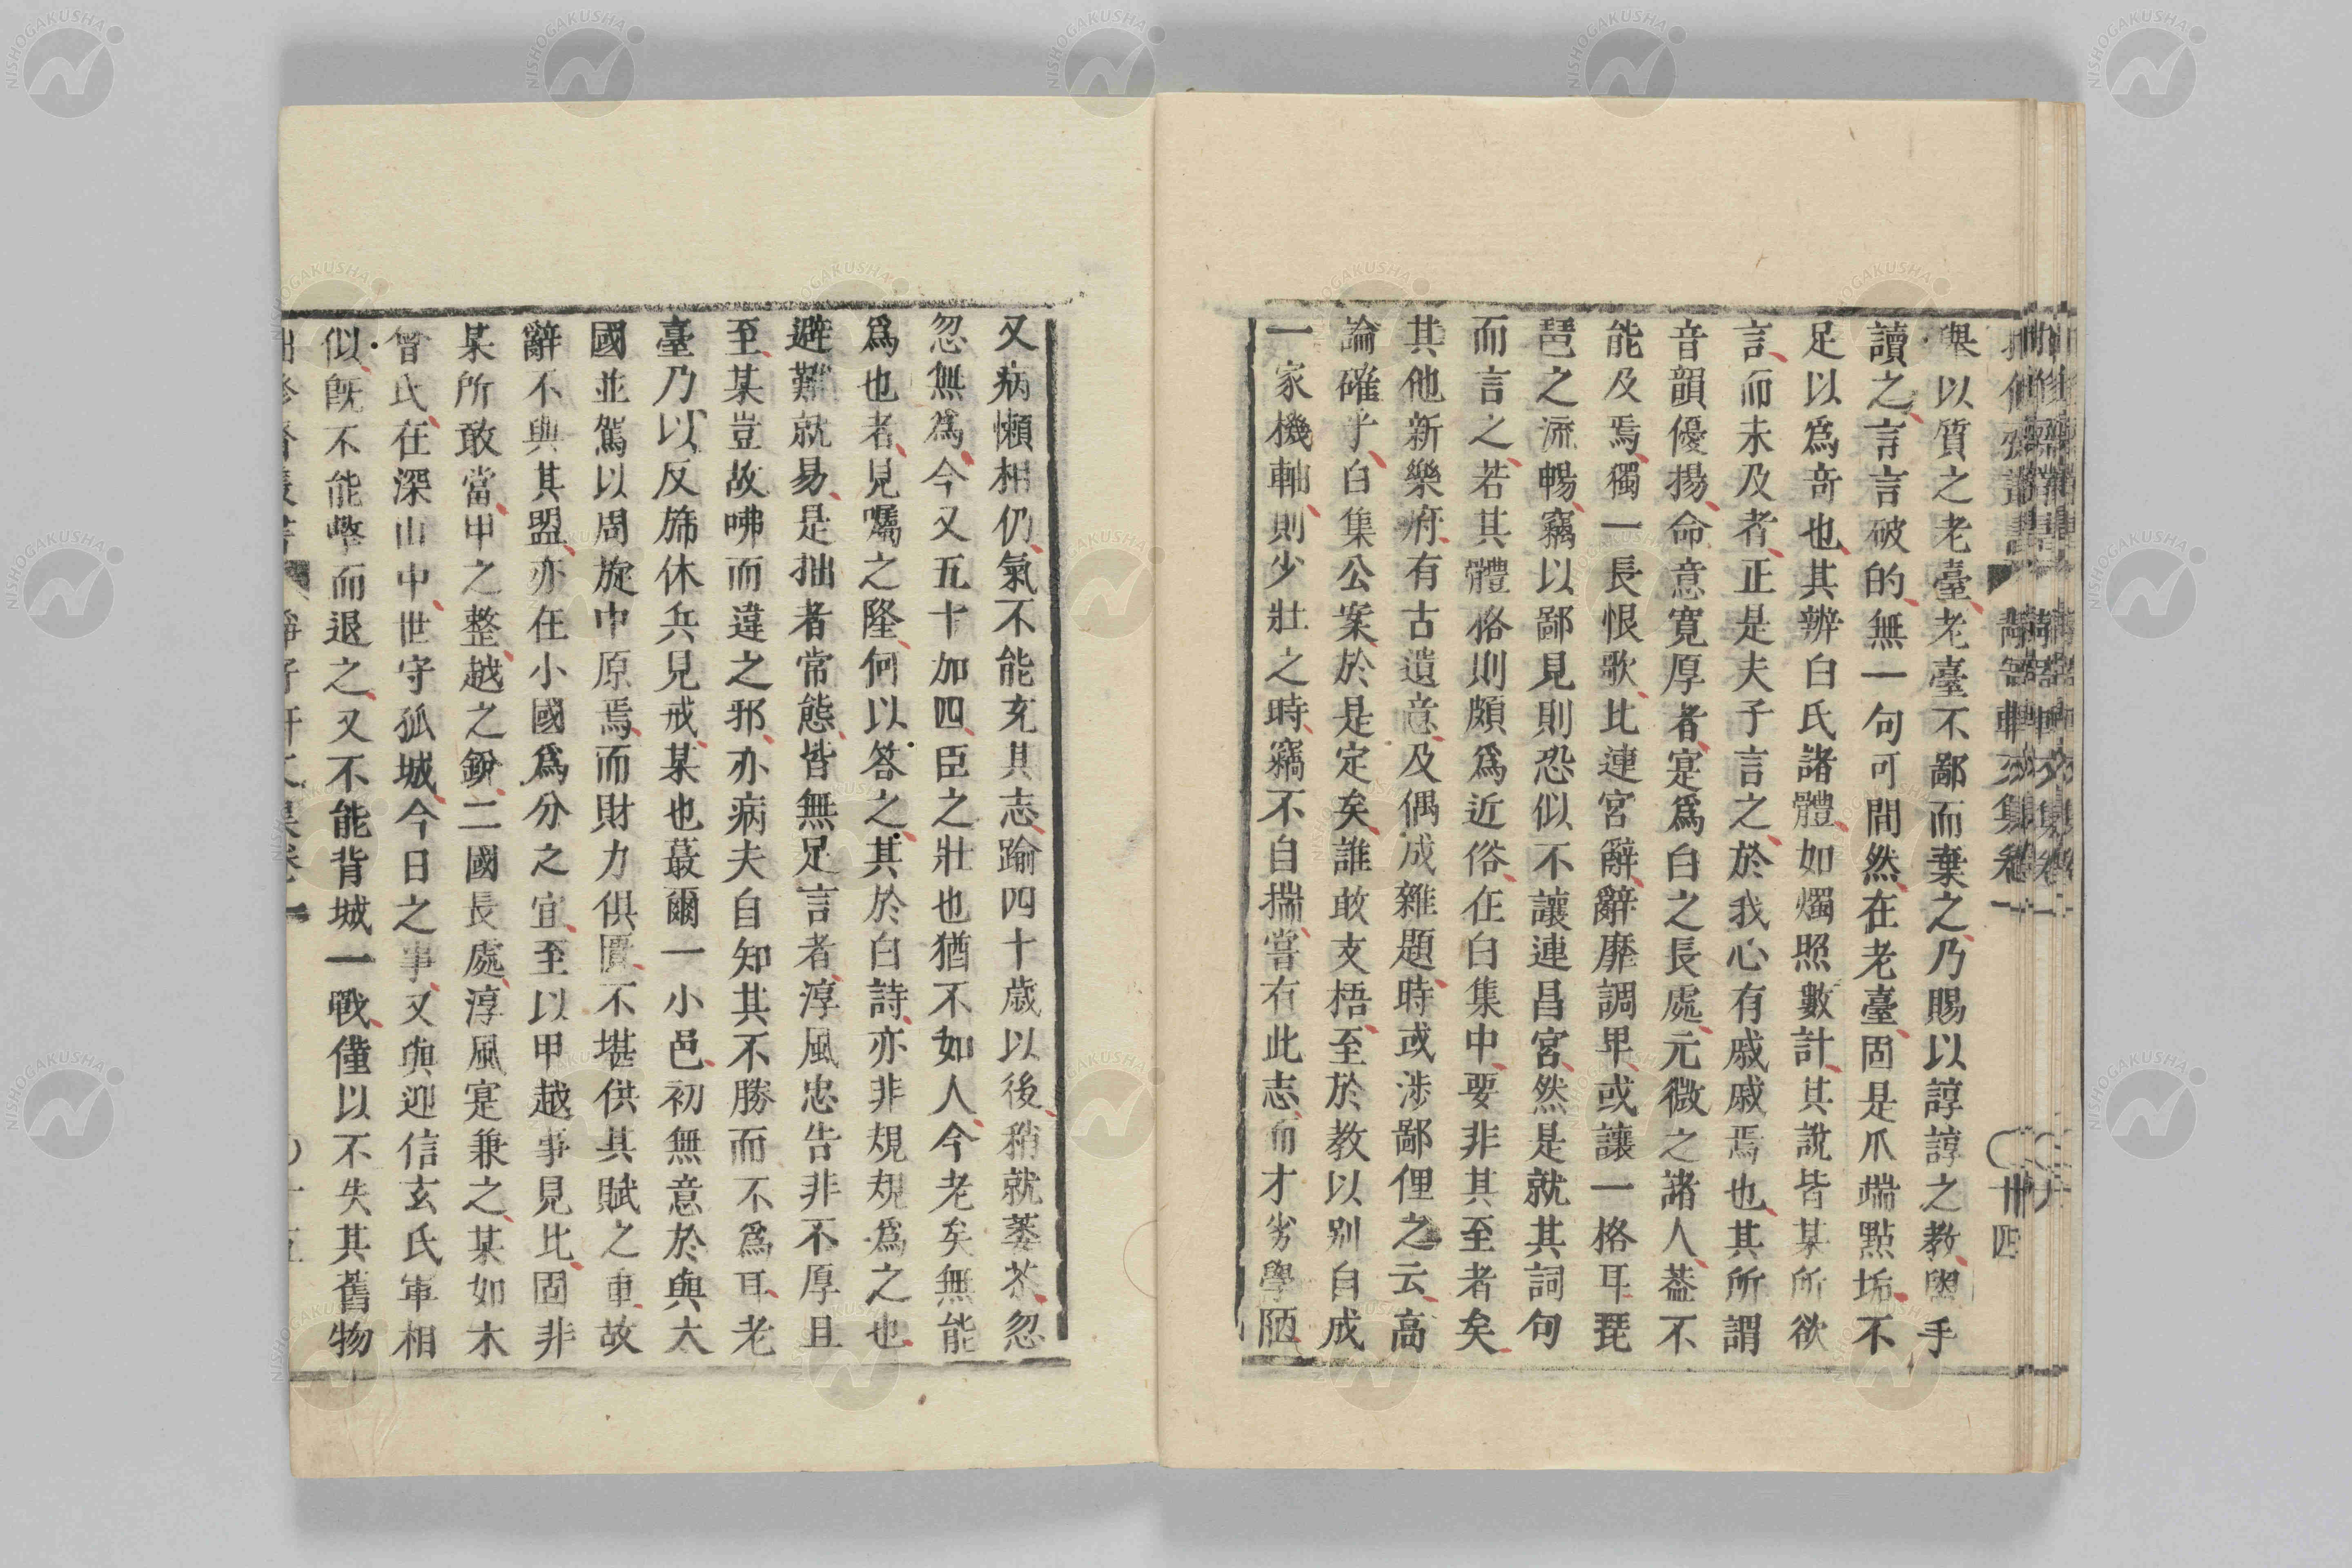 與以質之老臺老臺不鄙而棄之乃賜以諄諄之教圝手
讀之言言破的無一句可間然在老臺固是爪端點垢不
足以爲竒也其辨白氏諸體如燭照數計其說皆某所欲
言而未及者正是夫子言之於我心有戚戚焉也其所謂
音韻優揚命意寛厚者寔爲白之長處元微之諸人葢不
能及焉獨一長恨歌比連宮辭辭靡調卑或讓一格耳琵
琶之流暢竊以鄙見則恐似不讓連昌宮然是就其詞句
而言之若其體格則頗爲近俗在白集中要非其至者矣
其他新樂府有古遺意及偶成雜題時或渉鄙俚之云高
論確乎白集公案於是定矣誰敢支梧至於教以別自成
一家機軸則少壯之時竊不自揣嘗有此志而才劣學陋
又病懶相仍氣不能充其志踰四十歳以後稍就萎苶忽
忽無爲今又五十加四臣之壯也猶不如人今老矣無能
爲也者見囑之隆何以答之其於白詩亦非規規爲之也
避難就易是拙者常態皆無足言者淳風忠告非不厚且
至某豈故咈而違之邪亦病夫自知其不勝而不爲耳老
臺乃以反斾休兵見戒某也蕞爾一小邑初無意於與大
國並駕以周旋中原焉而財力倶匱不堪供其賦之重故
辭不與其盟亦在小國爲分之宜至以甲越事見比固非
某所敢當甲之整越之銳二國長處淳風寔兼之某如木
曾氏在深山中世守孤城今日之事又與迎信玄氏軍相
似旣不能擊而退之又不能背城一戰僅以不失其舊物